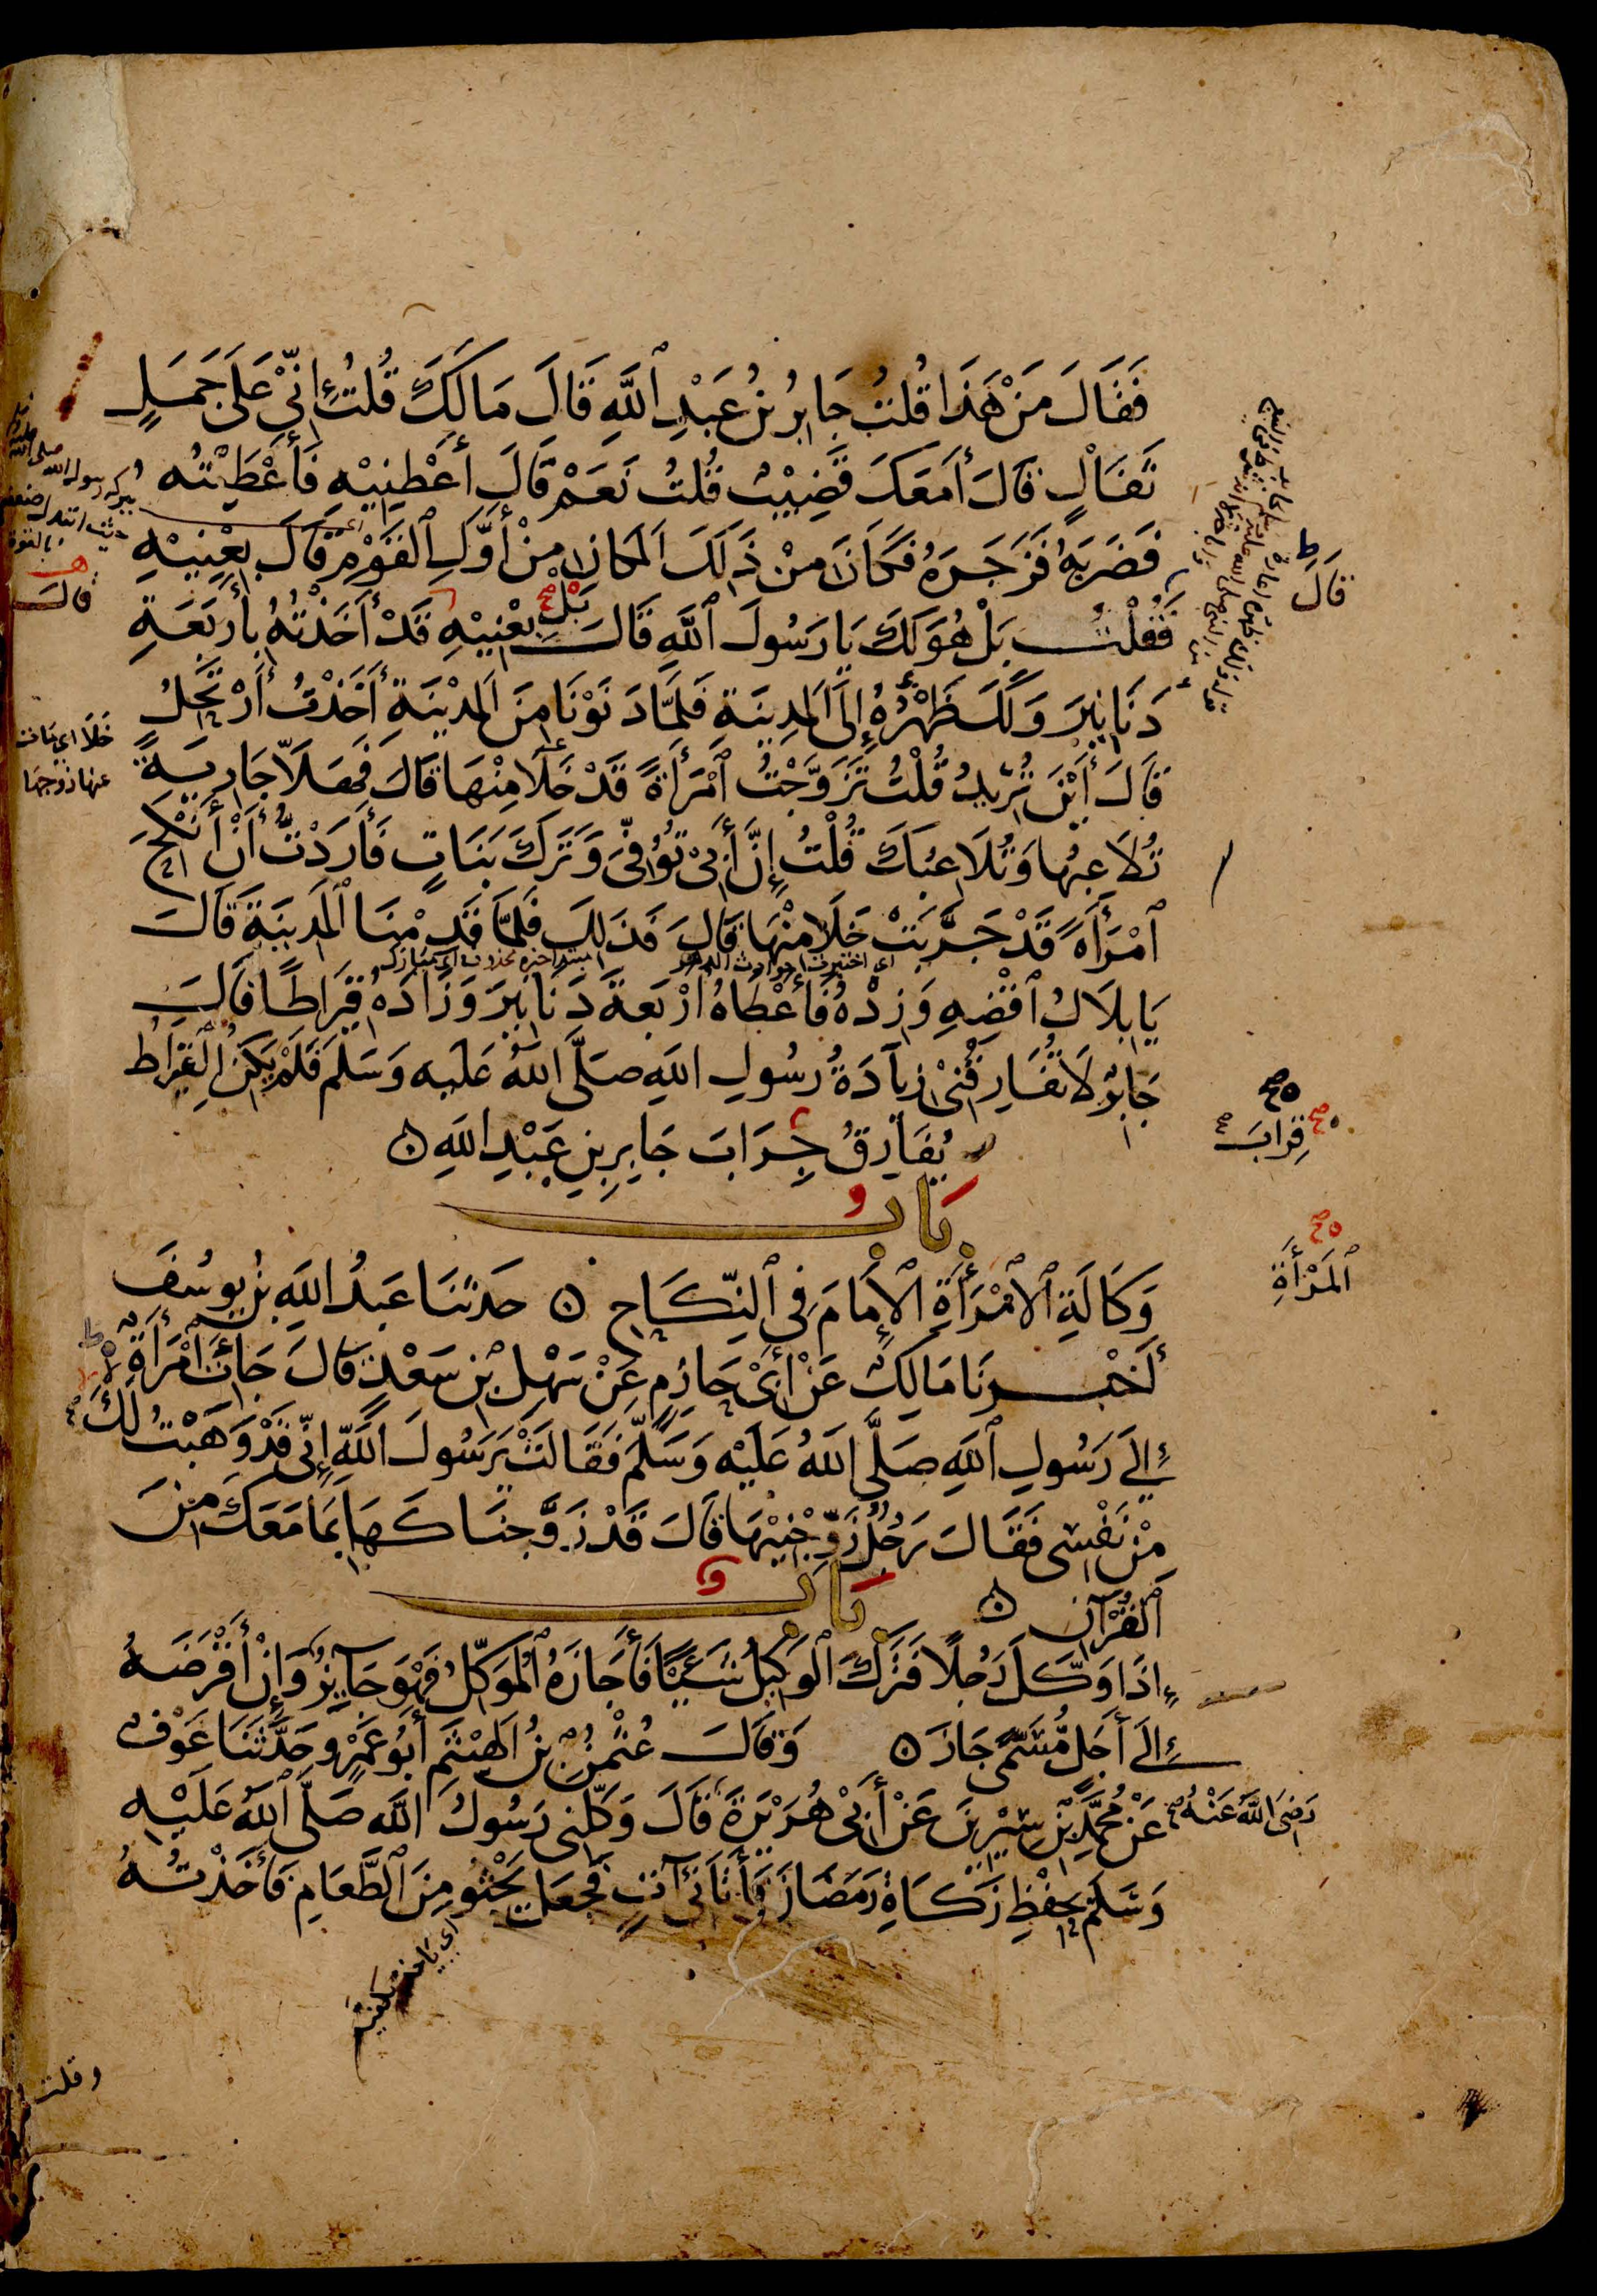 فَقَالَ مَنْ هَذَا قُلْتُ جَابِرُ بْنُ عَبْدِ ٱللَّهِ قَالَ مَالَكَ قُلْتُ إِنِّي عَلَى جَمَلٍ
ثَفَالٍ قَالَ أَمَعَكَ قَضِيبٌ قُلْتُ نَعَمْ قَالَ أَعْطِنِيْهِ فَأَعْطَيْتُه
فَضَرَبَهُ فَزَجَرَهُ فَكَانَ مِنْ ذَلِكَ المَكَانِ مِنْ أَوَّلِ ٱلقَوْمِ قَالَ بِعْنِيْهِ
قَالَ
قال
فَقُلْتُ بَلْ هُوَ لَكَ يَا رَسُولَ ٱللَّهِ قَالَ بَلْ بِعْنِيْهِ قَدْ أَخَذْتُهُ بِأَرْبَعَةِ
دَنَانِيرَ وَلَكَ ظَهْرُهُ إِلَى المَدِينَةِ فَلَمَّا دَنَوْنَا مِنَ المَدِيْنَةِ أَخَذْتُ أَرْتَحِلُ
خَلَا اي مات
عنها زوجها
قَالَ أَيْنَ تُرِيدُ قُلْتُ تَزَوَّجْتُ ٱمْرَأَةً قَدْ خَلَا مِنْهَا قَالَ فَهَلَّا جَارِيَةً
تُلَاعِبُهَا وَتُلَاعِبُكَ قُلْتُ إِنَّ أَبِيْ تُوُفِّيَ وَتَرَكَ بَنَاتٍ فَأَرَدْتُ أَنْ أَنْكِحَ
ٱمْرَأَةً قَدْ جَرَّبَتْ خَلَا مِنْهَا قَالَ فَذَلِكَ فَلَمَّا قَدِمْنَا ٱلمَدِينَةَ قَالَ
اي اختبرت حوادث الدهر
مبتدا خبره محذوف اي مبارك
يَا بِلَالُ ٱقْضِهِ وَزِدْهُ فَأَعْطَاهُ أَرْبَعَةَ دَنَانِيرَ وَزَادَهُ قِيرَاطًا قَالَ
جَابِرٌ لَا تُفَارِقُنِيْ زِيَادَةُ رَسُولِ اللَّهِ صَلَّى اللَّهُ عَلَيه وَسَلَّمَ فَلَمْ يَكُنِ القِيرَاطُ
يُفَارِقُ جِرَابَ جَابِرِ بْنِ عَبْدِ اللَّهِ
قِرابَ
بَابُ
وَكَالَةِ ٱلامْرَأَةِ ٱلإِمَامَ فِي ٱلنِّكَاحِ حَدَّثَنَا عَبْدُ اللَّهِ بْنُ يُوسُفَ
ٱلمَرْأَةِ
أَخْبَرَنَا مَالِكٌ عَنْ أَبِيْ حَازِمٍ عَنْ سَهْلِ بْنِ سَعْدٍ قَالَ جَاءَتْ امْرَأَةٌ
إِلَى رَسُولِ ٱللَّهِ صَلَّى اللَّهُ عَلَيْهِ وَسَلَّمَ فَقَالَتْ يَرَسُولَ ٱللَّهِ إِنِّي قَدْ وَهَبْتُ لَكَ
مِنْ نَفْسِي فَقَالَ رَجُلٌ زَوِّجْنِيْهَا قَالَ قَدْ زَوَّجْنَاكَهَا بِمَا مَعَكَ مِنَ
ٱلقُرْآنِ
بَابٌ
إِذَا وَكَّلَ رَجُلًا فَتَرَكَ ٱلوَكِيلُ شَيْئًا فَأَجَازَهُ ٱلمُوَكِّلُ فَهْوَ جَائِزٌ وَإِنْ أَقْرَضَهُ
إِلَى أَجَلٍ مُسَمًّى جَازَ وَقَالَ عُثْمٰنُ بْنُ الهَيْثَمِ أَبُو عَمْرٍو حَدَّثَنَا عَوْفٌ
عَنْ مُحَمَّدِ بْنِ سِيْرِينَ عَنْ أَبِيْ هُرَيْرَةَ رَضِيَ اللَّهُ عَنْهُ قَالَ وَكَّلَنِي رَسُولُ اللَّهِ صَلَّى ٱللَّهُ عَلَيْهِ
وَسَلَّمَ بِحِفْظِ زَكَاةِ رَمَضَانَ فَأَتَانِي آتٍ فَجَعَلَ يَحْثُو مِنَ ٱلطَّعَامِ فَأَخَذْتُهُ
وقلت